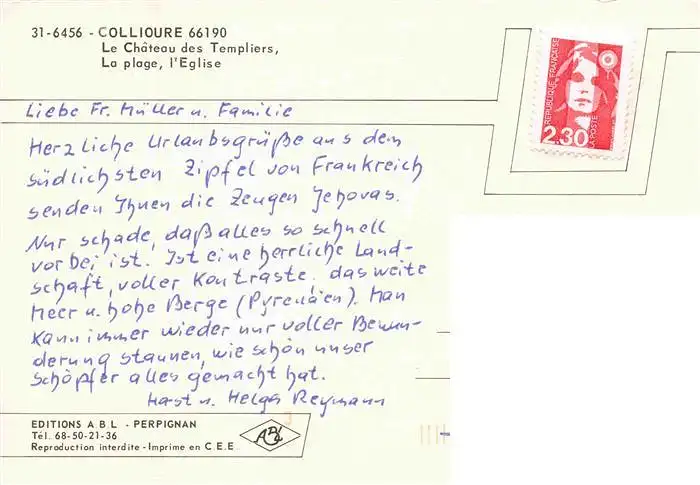 31-6456 - COLLIOURE 66190
Le Château des Templiers,
La plage, l'Eglise
REPUBLIQUE FRANÇAISE
2,30
LA POSTE
Liebe Fr. Müller u. Familie
Herzliche Urlaubsgrüße aus dem
südlichsten Zipfel von Frankreich
senden Ihnen die Zeugen Jehovas.
Nur schade, daß alles so schnell
vorbei ist. Ist eine herrliche Land-
schaft, voller Kontraste. das weite
Meer u. hohe Berge (Pyrenäen). Man
kann immer wieder nur voller Bewun-
derung staunen, wie schön unser
Schöpfer alles gemacht hat.
Horst u. Helga Reymann
EDITIONS A B L - PERPIGNAN
Tél. 68-50-21-36
Reproduction interdite - Imprime en C E E
ABL